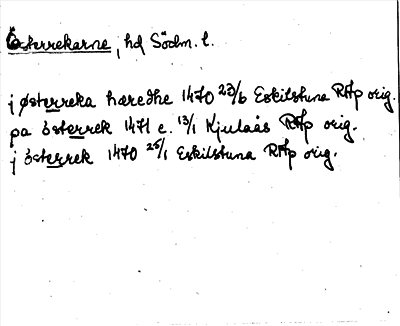 Österrekarne, hd Södm. l.
j østerreka hæredhe 1470 23/6 Eskilstuna RAp orig.
pa österrek 1471 e. 13/1 Kjulaås RAp orig.
j österrek 1470 25/1 Eskilstuna RAp orig.